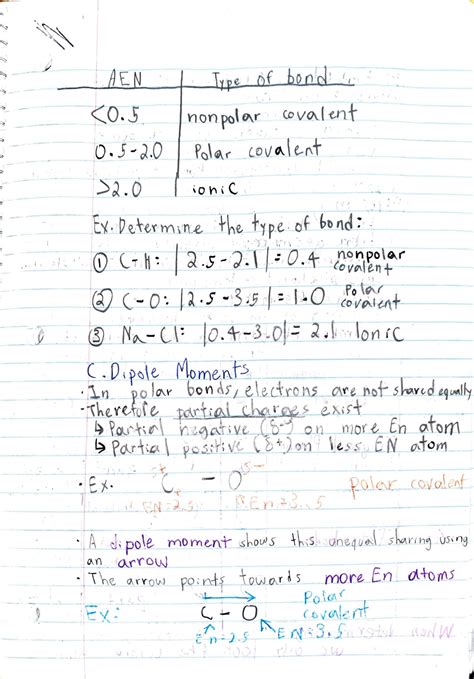 AEN | Type of bond
<0.5 | nonpolar covalent
0.5-2.0 | Polar covalent
>2.0 | ionic
Ex. Determine the type of bond:
① C-H: |2.5-2.1|= 0.4 nonpolar covalent
② C-O: |2.5-3.5|= 1.0 Polar covalent
③ Na-Cl: |0.4-3.0|= 2.1 Ionic
C. Dipole Moments
· In polar bonds, electrons are not shared equally
· Therefore partial charges exist
↳ Partial negative (δ-) on more En atom
↳ Partial positive (δ+) on less EN atom
· Ex. C - O polar covalent
EN=2.5 En=3.5
· A dipole moment shows this unequal sharing using
an arrow
· The arrow points towards more En atoms
Ex: C - O Polar covalent
En=2.5 EN=3.5